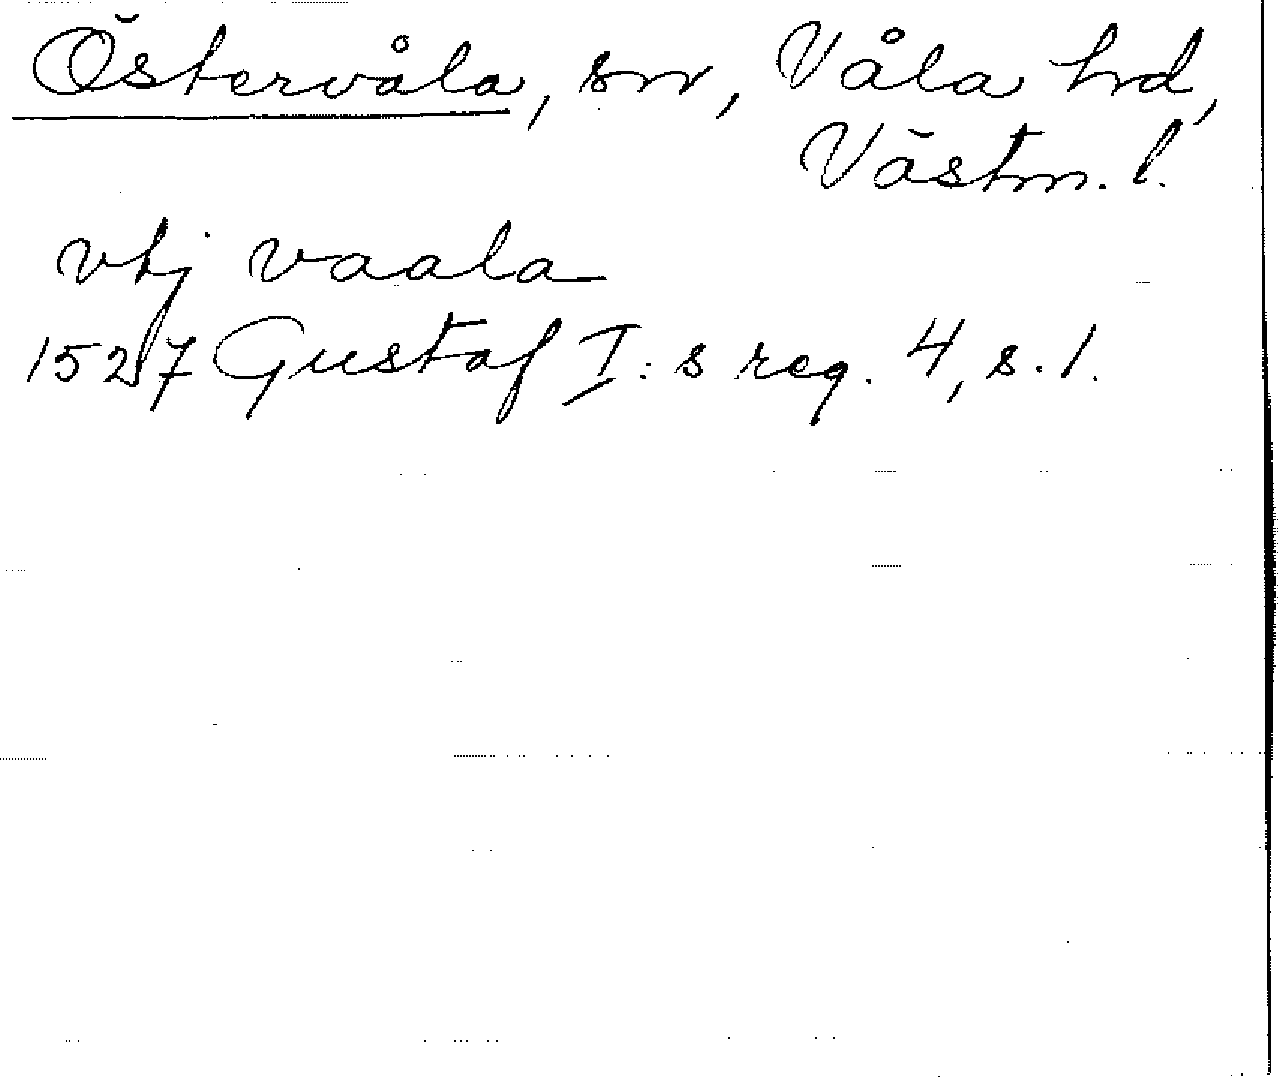 Östervåla, sn, Våla hd,
Västm. l.
vtj vaala
1527 Gustaf I:s reg. 4, s. 1.